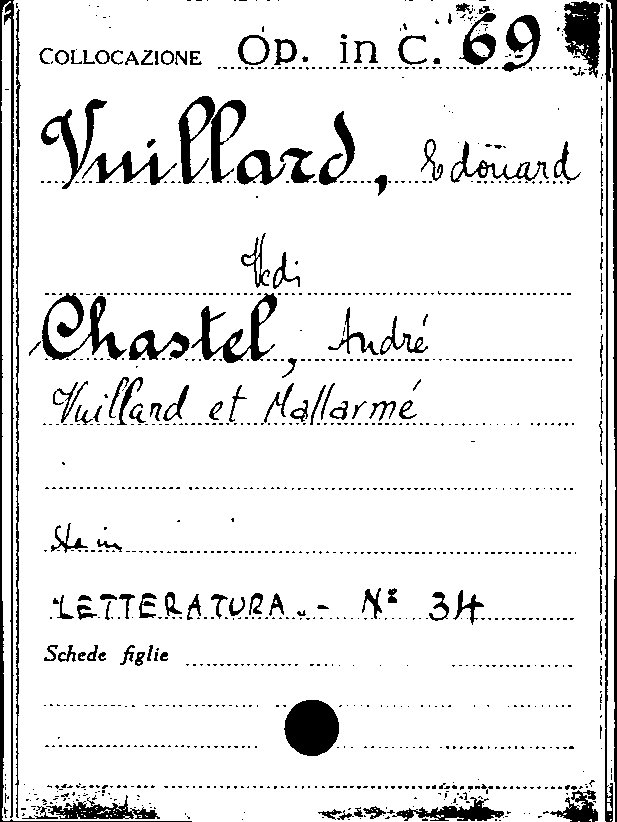 COLLOCAZIONE Op. in C. 69
Vuillard, Edoüard
Vedi
Chastel, André
Vuillard et Mallarmé
Sta in
LETTERATURA.- Nº 34
Schede figlie